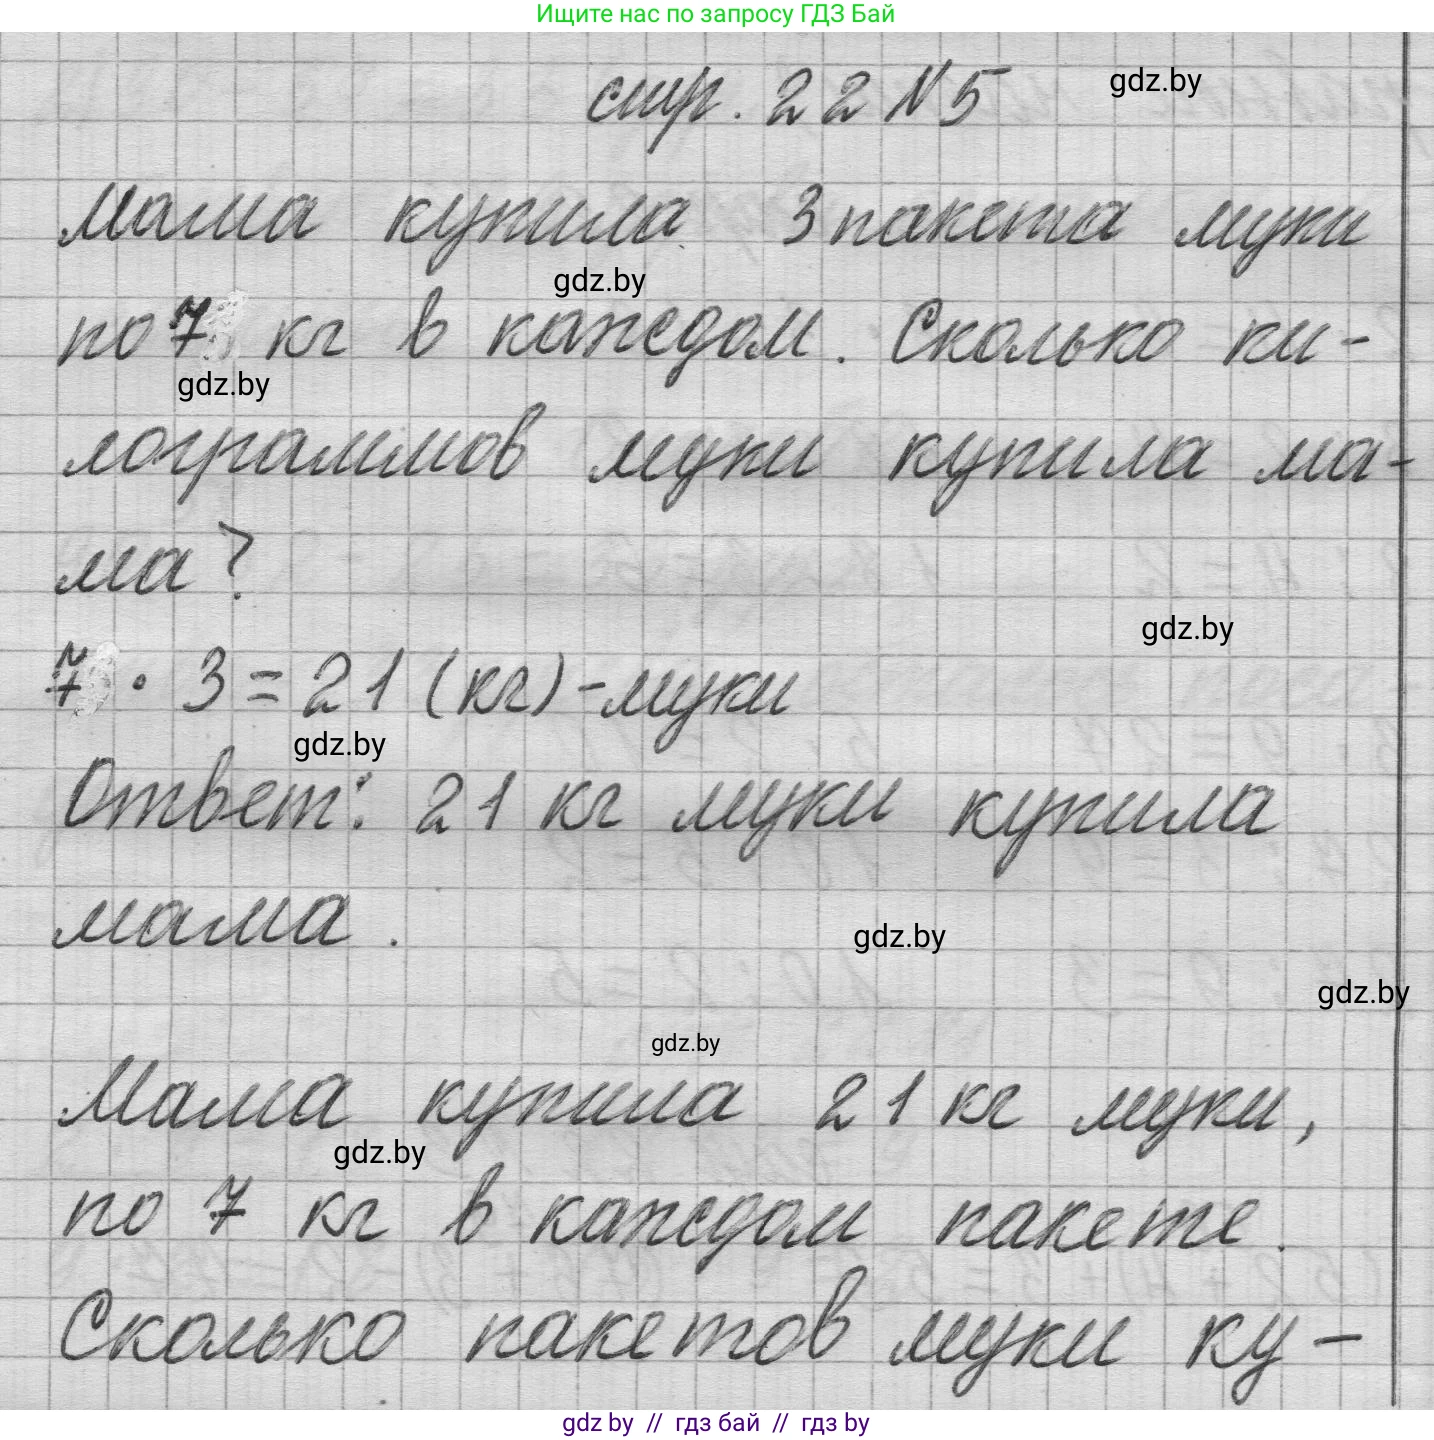 Ищите нас по запросу ГДЗ Бай
стр. 22 №5
gdz.by
Мама купила 3 пакета муки
gdz.by
по 7 кг в каждом. Сколько ки-
gdz.by
лограммов муки купила ма-
ма?
gdz.by
7 · 3 = 21 (кг) - муки
gdz.by
Ответ: 21 кг муки купила
мама.
gdz.by
gdz.by
gdz.by
Мама купила 21 кг муки,
gdz.by
по 7 кг в каждом пакете.
Сколько пакетов муки ку-
gdz by // гдз бай // гдз by